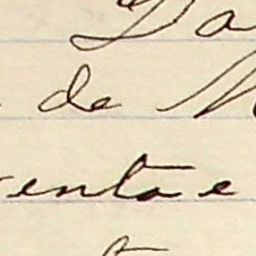 Da
de M
enta e